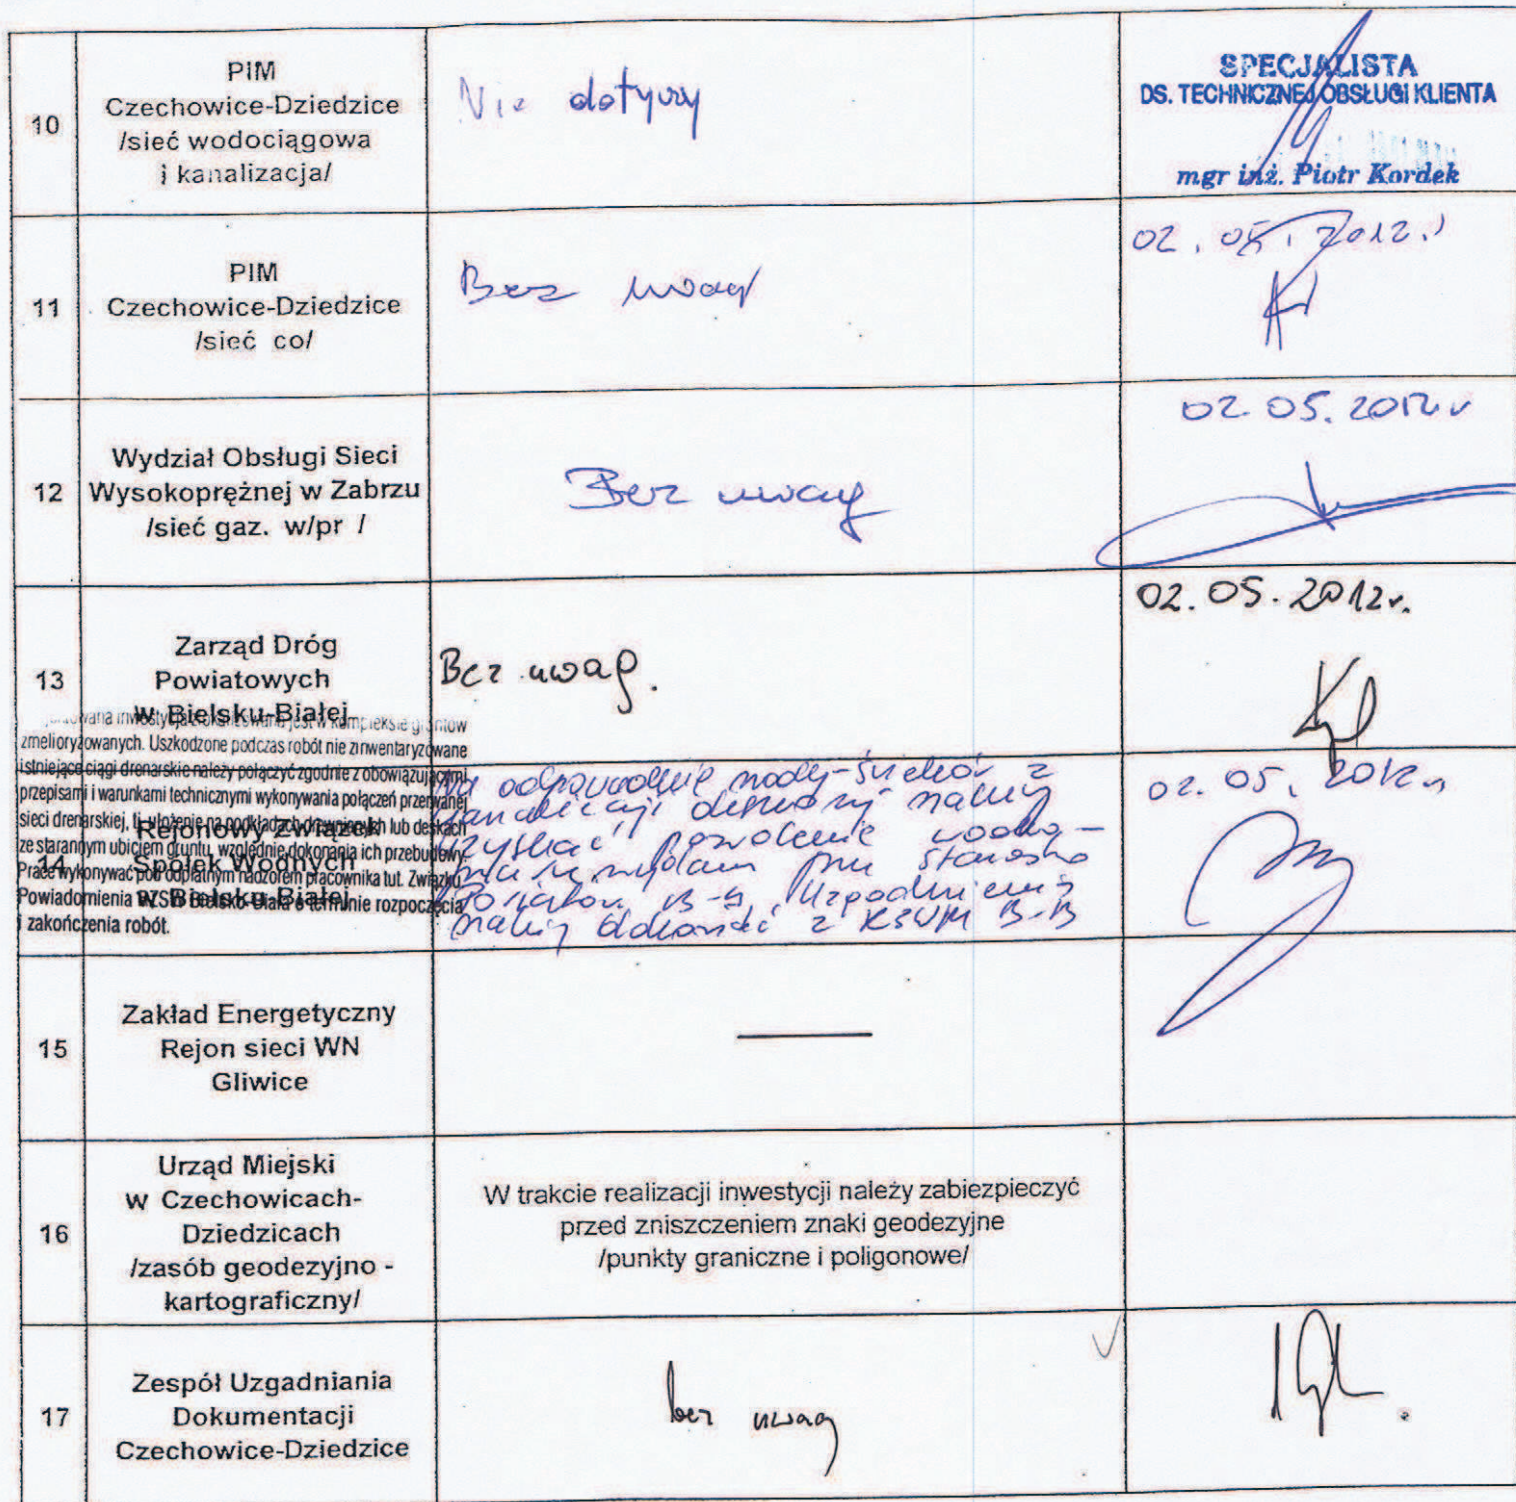 10
PIM
Czechowice-Dziedzice
/sieć wodociągowa
i kanalizacja/
Nie dotyczy
SPECJALISTA
DS. TECHNICZNEJ OBSŁUGI KLIENTA
mgr inż. Piotr Kordek
11
PIM
Czechowice-Dziedzice
/sieć co/
Bez uwag
02.05.2012.
12
Wydział Obsługi Sieci
Wysokoprężnej w Zabrzu
/sieć gaz. w/pr /
Bez uwag
02.05.2012.r
13
Zarząd Dróg
Powiatowych
w Bielsku-Białej
Bez uwag.
02.05.2012r.
inwestycja jest w kompleksie gruntów
zmelioryzowanych. Uszkodzone podczas robót nie zinwentaryzowane
istniejące ciągi drenarskie należy połączyć zgodnie z obowiązującymi
przepisami i warunkami technicznymi wykonywania połączeń przerwanej
sieci drenarskiej, tj. ułożenie na podkładach drewnianych lub deskach
ze starannym ubiciem gruntu, względnie dokonania ich przebudowy.
Prace wykonywać pod odpłatnym nadzorem pracownika tut. Związku.
Powiadomienia RZSW Bielsko-Biała o terminie rozpoczęcia
i zakończenia robót.
14
Rejonowy Związek
Spółek Wodnych
w Bielsku-Białej
Na odprowadzenie z
należy
uzyskać pozwolenie wodno-
Uzgodnienia
należy dokonać z B-B
02.05.2012r
15
Zakład Energetyczny
Rejon sieci WN
Gliwice
16
Urząd Miejski
w Czechowicach-
Dziedzicach
/zasób geodezyjno -
kartograficzny/
W trakcie realizacji inwestycji należy zabiezpieczyć
przed zniszczeniem znaki geodezyjne
/punkty graniczne i poligonowe/
17
Zespół Uzgadniania
Dokumentacji
Czechowice-Dziedzice
bez uwag